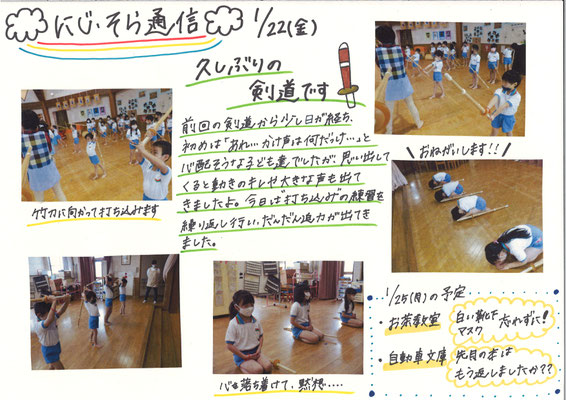 にじ・そら通信 1/22(金)
久しぶりの
剣道です
前回の剣道から少し日が経ち、
初めは「あれ…かけ声は何だっけ…」と
心配そうな子ども達でしたが、思い出して
くると動きのキレや大きな声も出て
きましたよ。今日は"打ち込み"の練習を
繰り返し行い、だんだん迫力が出てき
ました。
竹刀に向かって打ち込みます
\おねがいします!!/
心を落ち着けて、黙想....
1/25(月)の予定
・お茶教室 白い靴下
マスク 忘れずに!
・自動車文庫 先月の本は
もう返しましたか??